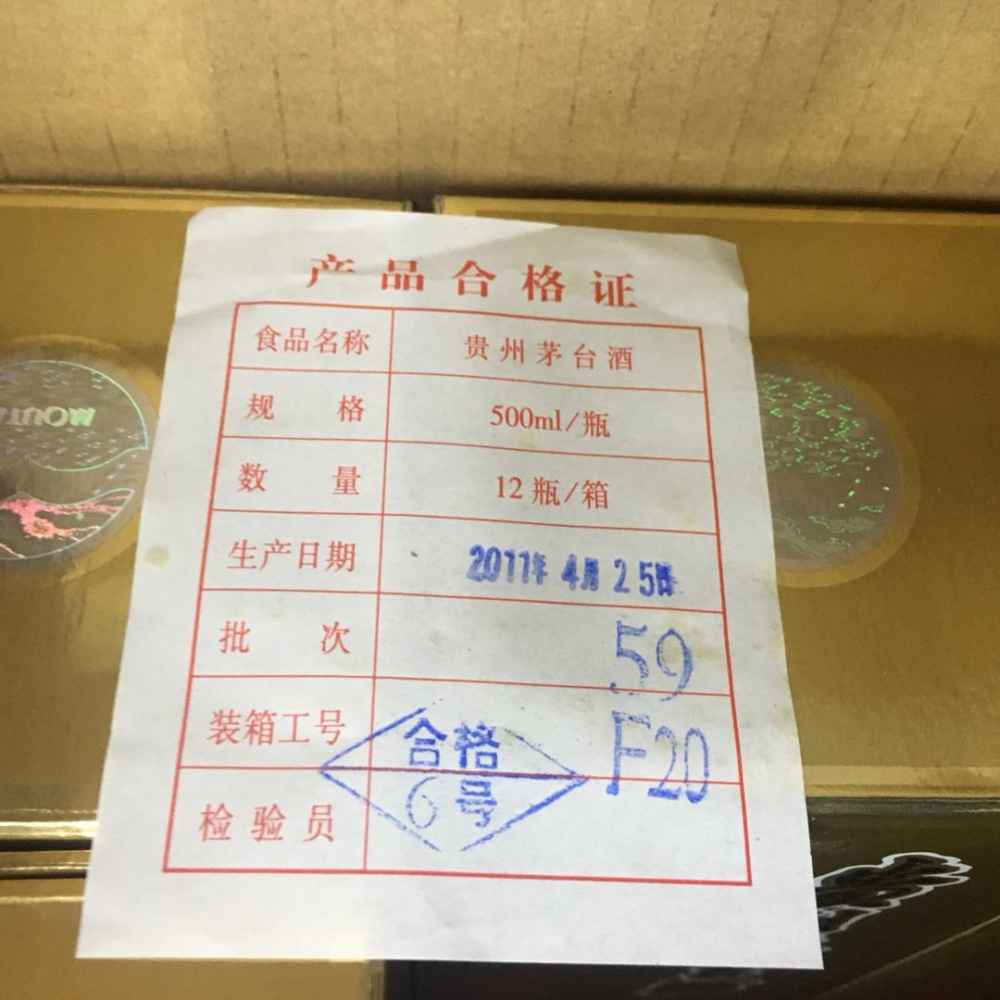 产品合格证
食品名称 贵州茅台酒
规格 500ml/瓶
数量 12瓶/箱
生产日期 2011年4月25日
批次 59
装箱工号 F20
合格
检验员 6号